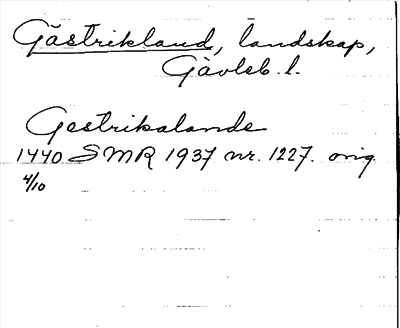 Gästrikland, landskap,
Gävleb. l.
Gestrikalande
1440 SMR 1937 nr. 1227. orig.
4/10